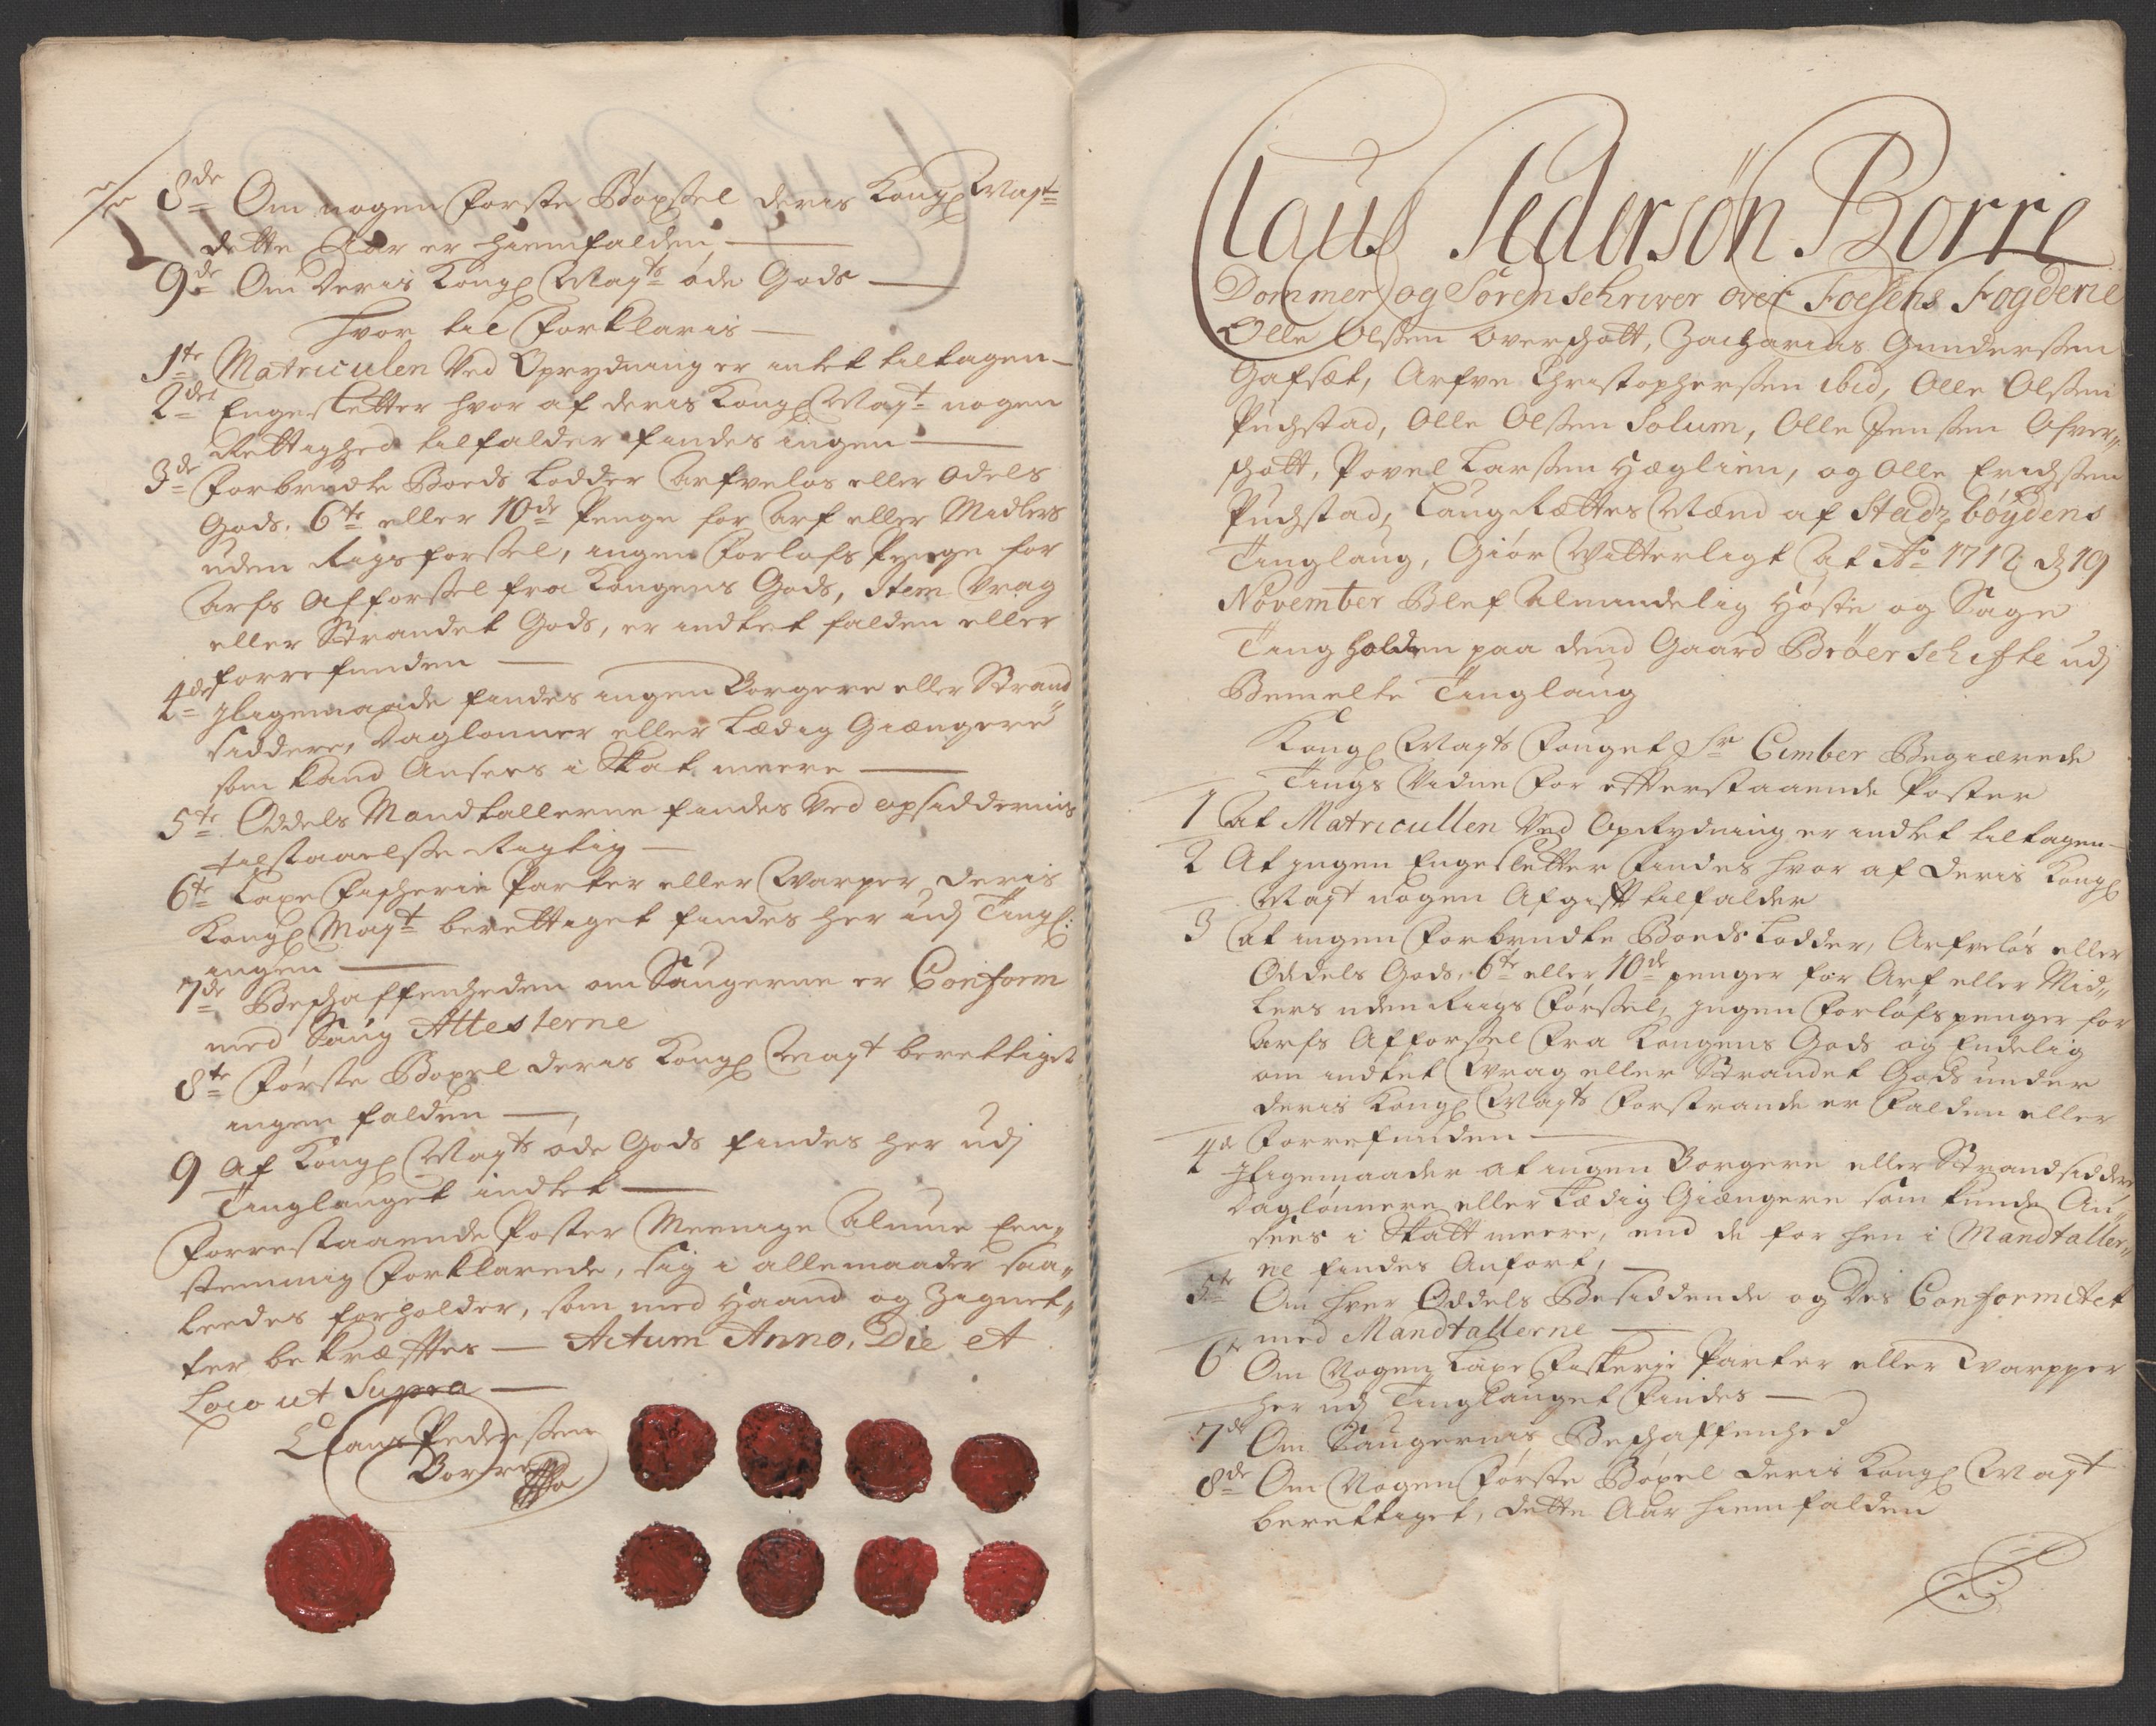 8de Om nogen Første Böxsel deris Kongl Mayts
dette Aar er hiemfalden,
9de Om Deris Kongl Mayts øde Gods
Hvor til Forklaris
1te Matriculen Ved Oprydning er intet tiltagen
2det Engesletter hvor af deris Kongl Mayt nogen
Rettighed tilfalder findes ingen
3de Forbrudte Boeds Lodder Arfveløs eller Odels
Gods. 6te eller 10de Penge for Arf eller Midlers
uden Rigs førsel, ingen Forlofs Penge for
Arfs Afførsel fra Kongens Gods, Item Vrag
eller Strandet Gods, er indtet falden eller
forrefunden
4de Ifligemaade findes ingen Borgere eller Strand„
siddere, Daglønner eller Lædig Giængere
som kand Ansees i Skat meere
5te Oddels Mandtallerne findes Ved opsiddernis
tilstaaelse Rigtig
6te Laxe Fischerie Parter eller Warper deris
Kongl Mayt berettiget findes her udj Tingl:
ingen
7de Beschaffenheden om Saugerne er Conform
med Saug Attesterne
8te Første Boxel deris Kongl Mayt berettiget
ingen falden
9 Af Kongl Mayts øde Gods findes her udj
Tinglauget indtet
Forrestaaende Poster Meenige Almue Een„
stemmig Forklarede, sig i allemaader saa„
leedes forholder, som med Haand og Zignet„
ter bekræfftes — Actum Anno, Die et
Loco ut Supra
Claus Pederssen
Borre
Claus Pedersøn Borre
Dommer og Sorenschriver over Foesens Fogderie
Olle Olssen Overschott, Zacharias Gunderssen
Gafsæt, Arfve Christopherssen ibid, Olle Olssen
Pudstad, Olle Olssen Solum, Olle Jenssen Ofver„
schott, Povel Larssen Hæglien, og Olle Erichssen
Pudstad, Laug Rættes Mænd af Stadzbøydens
Tinglaug, Giør Witterligt At Ao 1712 d 19
November Blef Almindelig Høste og Sage
Ting holden paa dend Gaard Brøerschifte udj
Bemelte Tinglaug
Kongl Mayts Fouget Sr Cimber Begiærede
Tings Vidne For efterstaaende Poster
1 At Matricullen Ved Oprydning er indtet tiltagen
2 At jngen Engesletter Findes hvor af Deris Kongl
Mayt nogen Afgifft tilfalder
3 At ingen Forbrudte Boeds Lodder, Arfveløs eller
Oddels Gods, 6te eller 10de penger for Arf eller Mid„
lers uden Riigs Førsel, jngen Forlofs penger for
Arfs Afførsel Fra Kongens Gods og Endelig
om indtet Wrag eller Strandet Gods under
deris Kongl Mayts Forstrande er Falden eller
Forrefunden
4de Ifligemaader at ingen Borgere eller Strandsiddere,
Daglønnere eller Lædig Giængere som kunde An„
sees i Skatt meere, end de for hen i Mandtaller„
ne findes Anfort,
5te Om hver Oddels Besiddende og Des Conformitet
med Mandtallerne
6te Om Nogen Laxe Fiskerje Parter eller Warpper
her udj Tinglauget Findes
7de Om Saugernis Beschaffenhed
8de Om Nogen Første Böxel deris Kongl Mayt
berettiget, dette Aar hiemfalden